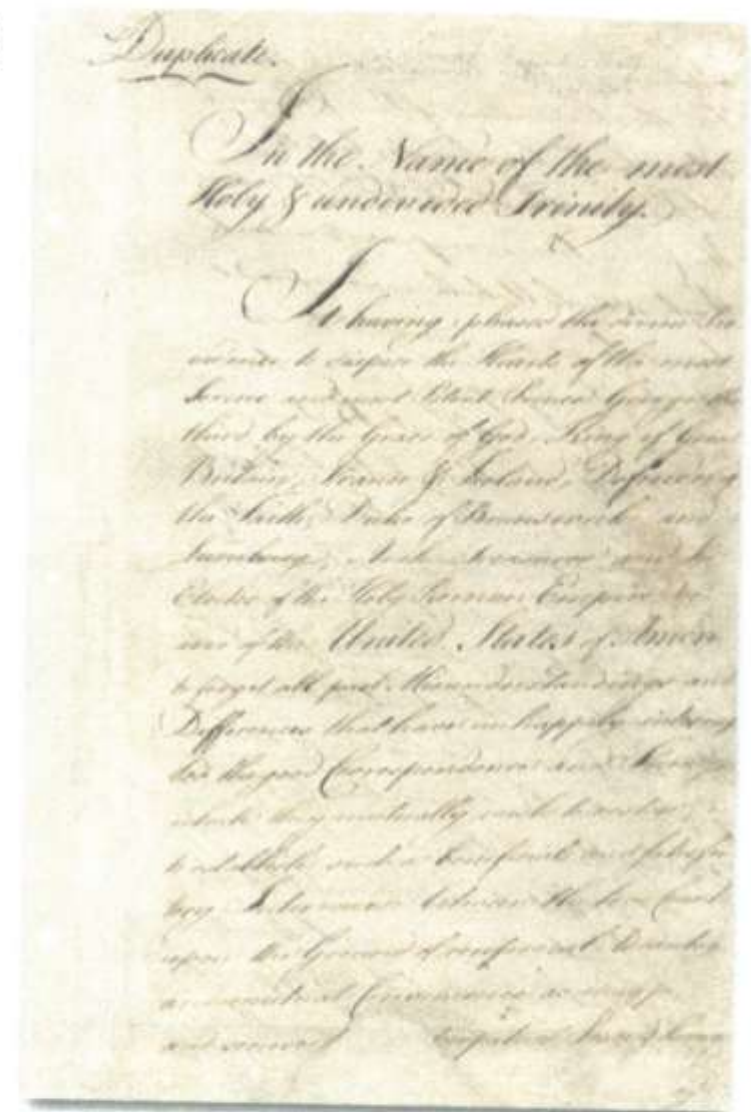 Duplicate.
In the Name of the most
Holy & undivided Trinity.
It having pleased the divine Pro
vidence to dispose the Hearts of the most
Serene and most Potent Prince George the
third, by the Grace of God, King of Great
Britain, France & Ireland, Defender of
the Faith, Duke of Brunswick and
Lunebourg, Arch Treasurer and
Elector of the Holy Roman Empire
and of the United States of Amer
to forget all past Misunderstandings and
Differences that have unhappily interrup
ted the good Correspondence and
which they mutually wish to
to establish such a beneficial and satisfac
tory Intercourse between the two
upon the Ground of reciprocal
and mutual Convenience as may
and